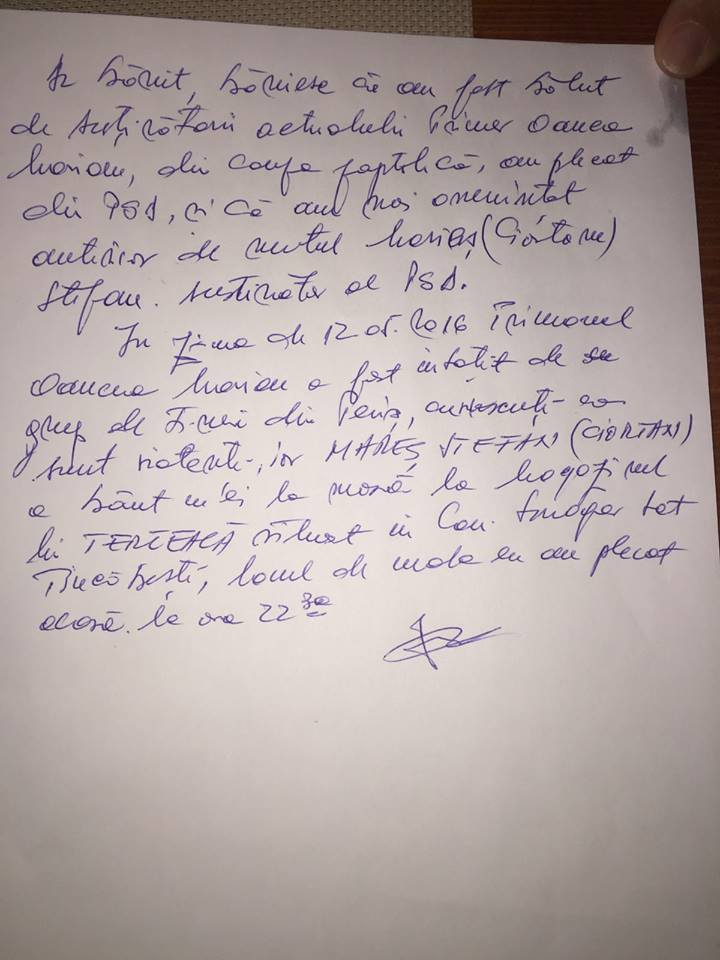 bănuit, bănuiesc că am fost bătut
de susținătorii actualului Primar Oancea
Marian, din cauza faptului că, am plecat
din PSD, și că am mai amenințat
anterior de Mareș (Ciortan)
Ștefan. susținător al PSD.
In ziua de 12 05.2016 Primarul
Oancea Marian a fost de un
grup de tineri din Periș, cunoscuți ca
sunt violenti, iar MAREȘ STEFAN (CIORTAN)
a băut cu ei la masă la magazinul
lui TERTEACĂ situat in Com. tot
Bucobești, locul de unde eu am plecat
acasă. la ora 22 30